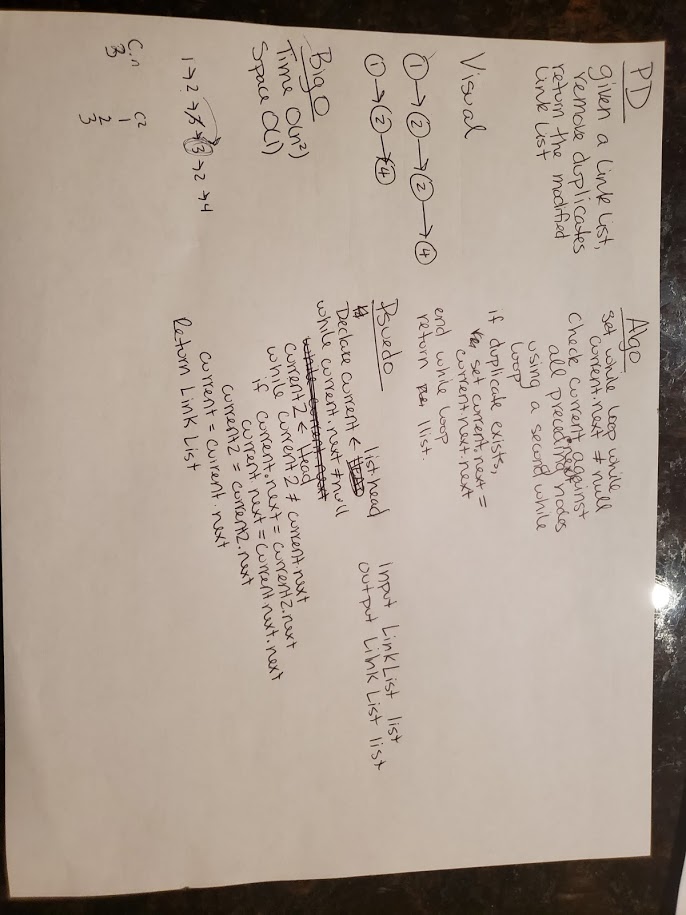 PD
given a Link List,
remove duplicates
return the modified
Link List
Visual
1 → 2 → 2 → 4
1 → 2 → 4
Big O
Time O(n²)
Space O(1)
1 → 2 → 3 → 3 → 2 → 4
C.n C2
3 1
2
3
Algo
set while loop while
current.next ≠ null
Check current.next against
all preceding nodes
using a second while
loop
if duplicate exists,
set current.next =
current.next.next
end while loop
return llist.
Psuedo
list.head
Declare current ← HEAD
while current.next ≠ null
while current.next
current2 ← Head
while current2 ≠ current.next
if current.next = current2.next
current.next = current.next.next
current2 = current2.next
current = current.next
Return Link List
Input LinkList list
output Link List list